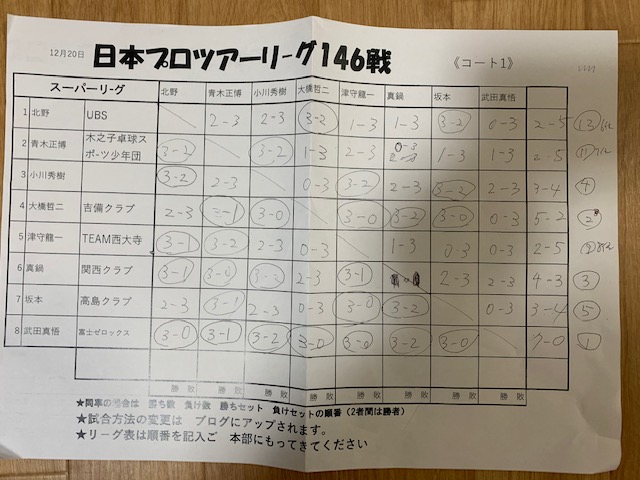 12月20日 日本プロツアーリーグ146戦 《コート1》
スーパーリーグ 北野 青木正博 小川秀樹 大橋哲二 津守龍一 真鍋 坂本 武田真悟
1 北野 UBS 2-3 2-3 3-2 1-3 1-3 3-2 0-3 2-5
2 青木正博 木之子卓球スポーツ少年団 3-2 3-2 1-3 2-3 0-3 1-3 1-3 2-5
3 小川秀樹 3-2 2-3 0-3 3-2 2-3 3-2 2-3 3-4 4
4 大橋哲二 吉備クラブ 2-3 3-1 3-0 3-0 3-2 3-0 0-3 5-2 2
5 津守龍一 TEAM西大寺 3-1 3-2 2-3 0-3 1-3 0-3 0-3 2-5
6 真鍋 関西クラブ 3-1 3-0 3-2 2-3 3-1 2-3 2-3 4-3 3
7 坂本 高島クラブ 2-3 3-1 2-3 0-3 3-0 3-2 0-3 3-4 5
8 武田真悟 富士ゼロックス 3-0 3-1 3-2 3-0 3-0 3-2 3-0 7-0 1
勝 敗 勝 敗 勝 敗 勝 敗 勝 敗 勝 敗 勝 敗 勝 敗 勝 敗
★同率の場合は 勝ち数 負け数 勝ちセット 負けセットの順番 (2者間は勝者)
★試合方法の変更は ブログにアップされます。
★リーグ表は順番を記入ご 本部にもってきてください